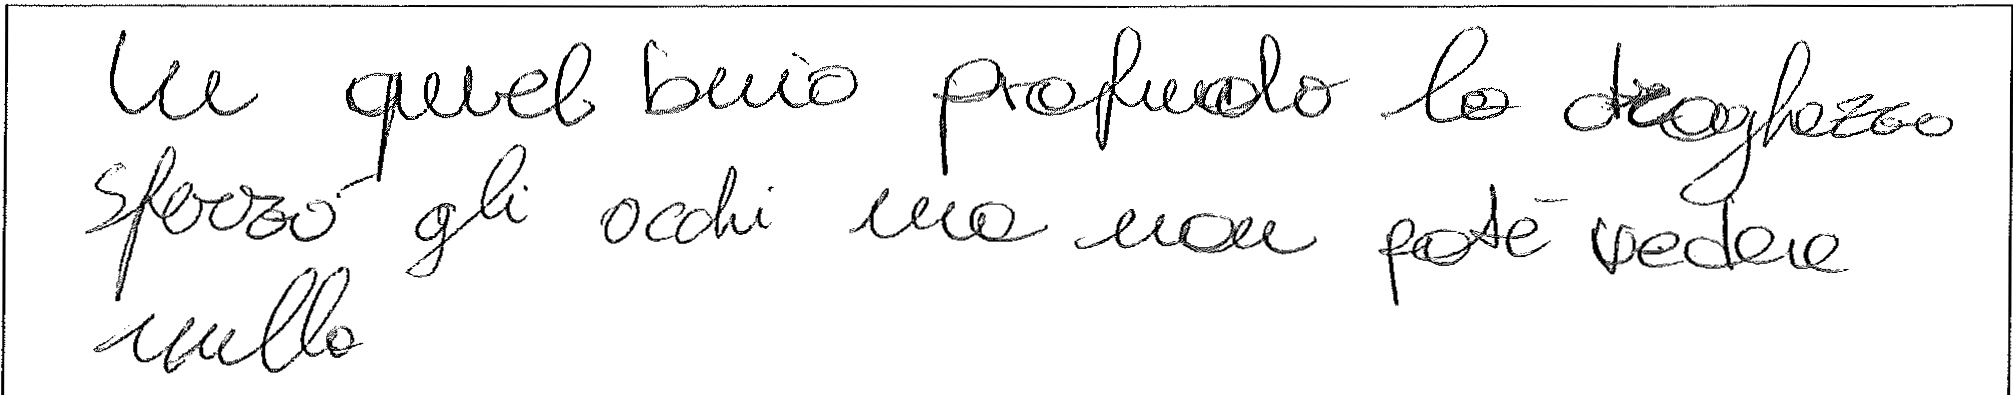 In quel buio profundo la draghezza
sforzò gli occhi ma non poté vedere
nulla